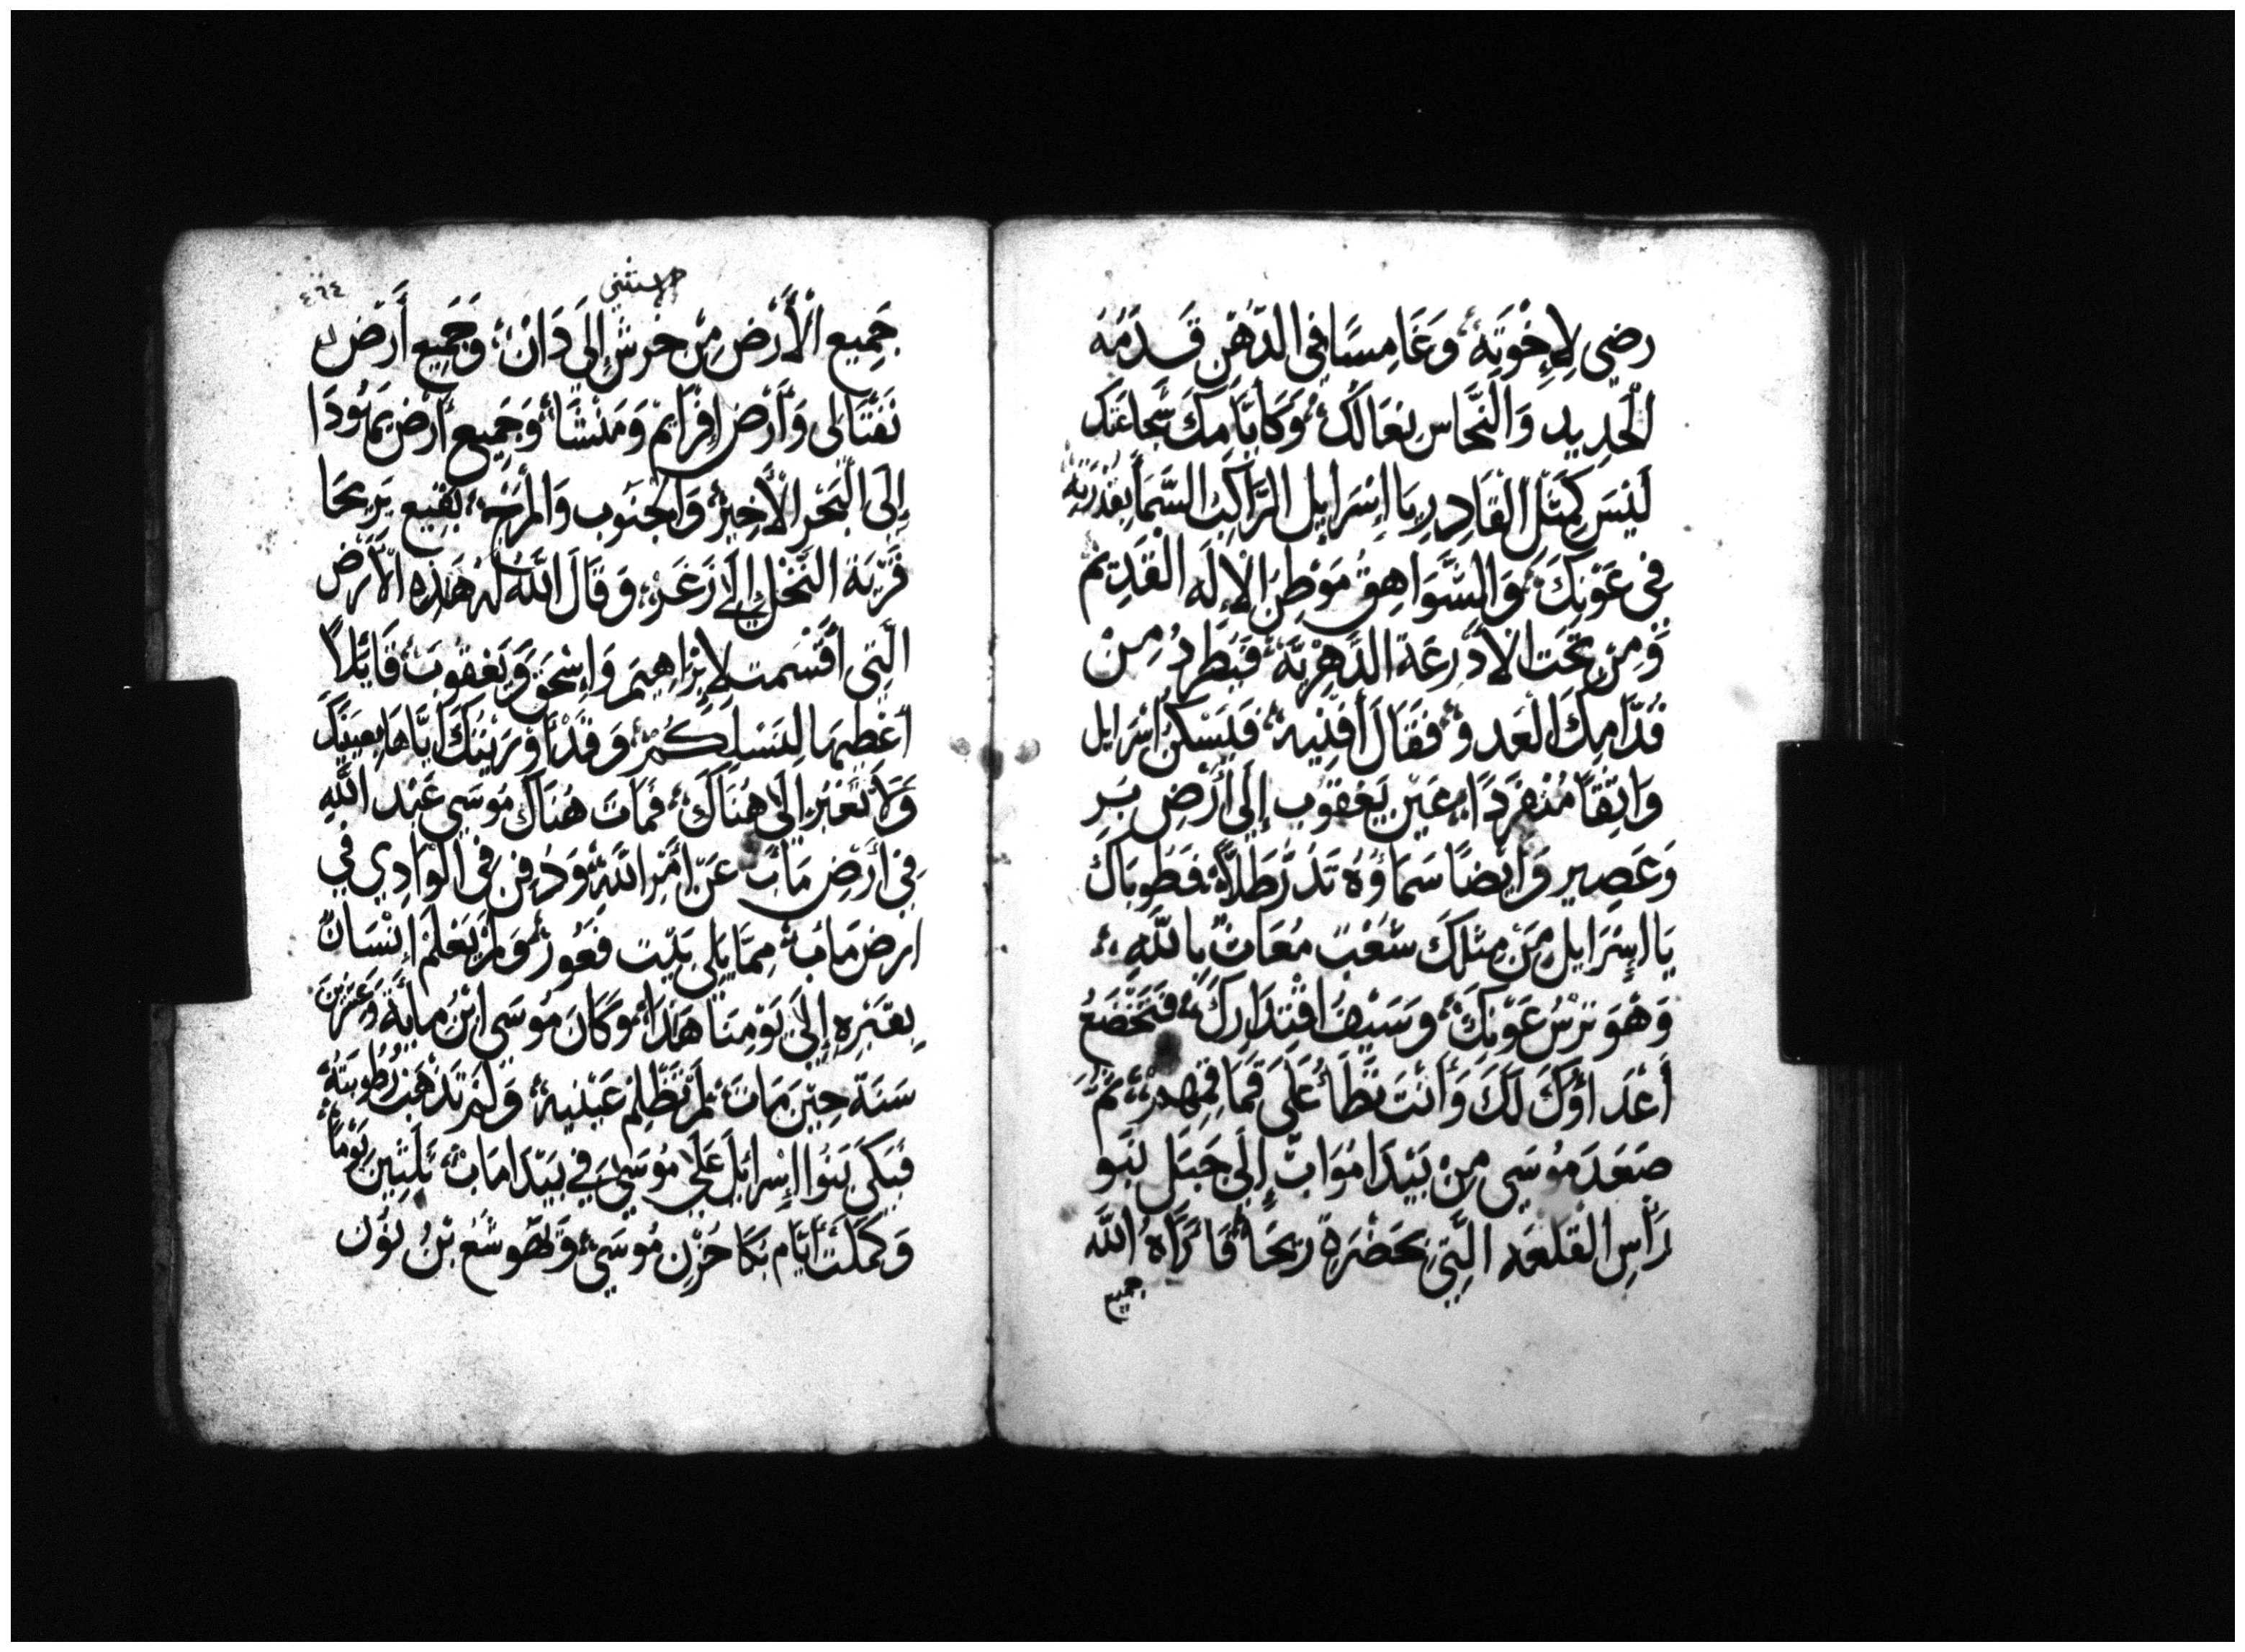 رضى لِإِخْوَتِهِ، وَغَامِسًا فِى الدّهْنِ قَدَمَهُ
الْحَدِيد وَالنَّحَّاس نِعَالُكَ، وَكَأَيَّامِكَ شَجَاعَتَك
لَيْسَ كَمِثْلِ الْقَادِرِ يَا إِسْرَايِل الرَّاكِبُ السَّمَا بِقُدْرَتِهِ
فِى عَوْنِكَ، وَالشَّوَاهِقُ مَوْطِنُ الإِلَه الْقَدِيم
وَمِنْ تَحْتَ الأَدْرِعَة الدَّهْرِيَّة، فَيُطْرَدُ مِنْ
قُدَّامِكَ الْعَدو، فَقَالَ أَفْنِيهِ، فَيَسْكُنُ إسْرَايل
وَاثِقًا مُنْفَرِدًا بِعَيْن يَعْقُوب إِلَى أَرْضِ بُرِ
وَعَصِير وَايْضًا سَمَاؤُهُ تَدُرّ طَلاًّ، فَطُوبَاكَ
يَا اسْرَايل مَنْ مِثْلِكَ شَعْبٌ مُعَانٌ بِاللَّهِ،
وَهْوَ تُرْسُ عَوْنِكَ، وَسَيْفُ اقْتِدَارِكَ، فَتَخْضَعُ
أَعْدَاؤُكَ لَكَ وَأَنْتَ تَطَأُ عَلَى قِمَمِهِمْ، ثُمَّ
صَعَدَ مُوسَى مِنْ بَيْدَا مُوَابَ إِلَى جَبَل نَبو
رَأْسِ الْقَلعَه الَّتِى بِحَضْرَةِ رِيحَا، فَارَاهُ اللَّه
جميع
الاستثنى
٤٦٤
جَمِيع الْأَرْض مِنْ حرش إِلَى دَانْ، وَجَمِيع أَرْض
نَفْتَالى وَأَرْض إِفْرَايمْ وَمَنْشَا، وَجَمِيع أَرْض يَهُودَا
إِلَى الْبَحْرِ الْأَخِيرْ، وَالْجَنُوب وَالْمَرْج، بَقِيع يَرِيحَا
قَرْيَة النَّخْل إِلَى زَغَرْ، وَقَالَ اللَّه لَهُ هَذِهِ الْأَرْض
الَّتِى أَقْسَمت لإِبْرَاهِيم وَإِسْحَقَ وَيَعْقُوبَ، قَايلاً
أُعْطِيهَا لِنَسْلِكُمْ، وَقَدْ أَوْرَيْتكَ إِيَّاهَا بِعَيْنَيكَ
وَلاَ تَعْبُر إِلَى هُنَاكَ، فَمَاتَ هُنَاكَ مُوسَى عَبْد اللَّهِ
فِى أَرْضِ مَابَ، عَنْ أَمْرِ اللَّه، وَدُفِنَ فِى الْوَادِي فِي
ارض مَابَ، مِمَّا يَلِى بَيْت فَغُور، وَلَمْ يَعْلَمْ إِنْسَانٌ
بِقَبْرِهِ إِلَى يَوْمِنَا هَذَا، وَكَانَ مُوسَى ابْنُ مِايَة وَعِشْرِينَ
سَنَة حِيْن مَاتَ، لَمْ تُظْلِمْ عَيْنيه، وَلَمْ تَذْهَبْ رُطُوبَتهُ،
فَبَكَى بَنُوا إِسْرائلَ عَلَى مُوسَى فِي بَيْدَا مَابْ، ثَلَثِينَ يَوْماً،
وَكَمَلَتْ أَيَّام بُكَا حُزْنِ مُوسَى، وَيَهُوشُعْ بْنُ نُون